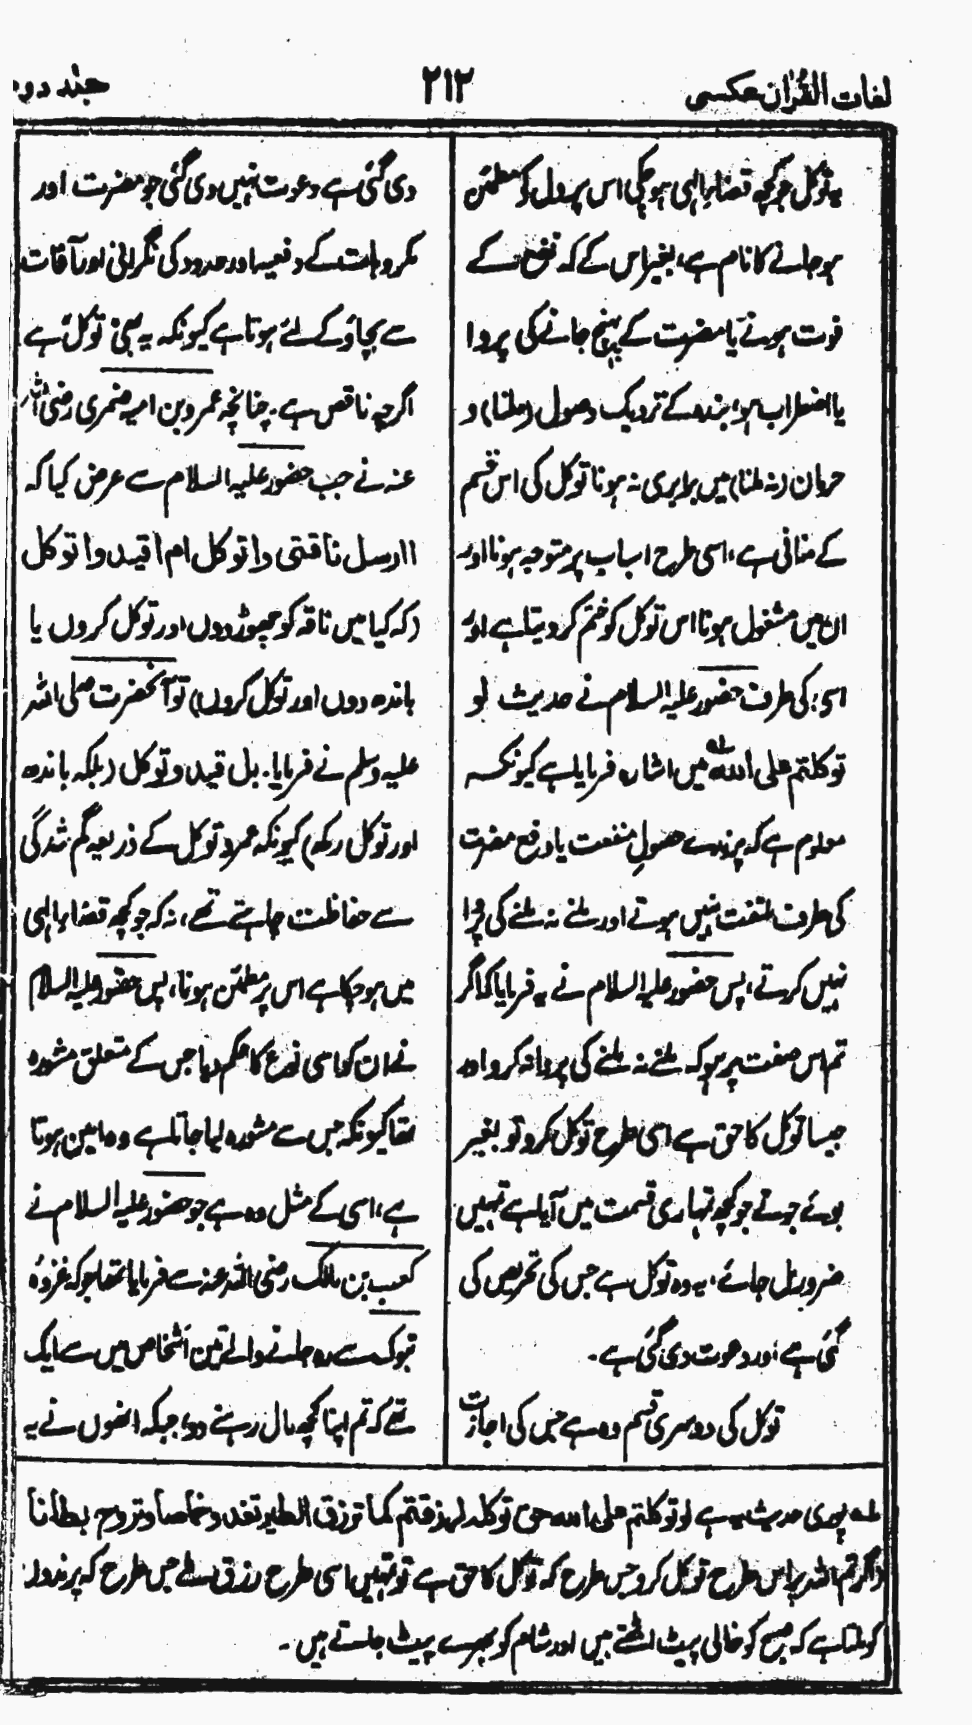 لغات القرآن عکسی
۲۱۲
جلد دوم
یہ توکل جو کچھ قضاءِ الٰہی ہو چکی اس پر دل کو مطمئن
ہو جانے کا نام ہے، بغیر اس کے کہ نفع کے
فوت ہونے یا مضرت کے پہنچ جانے کی پروا
یا اضطراب ہو، بندہ کے نزدیک وصول (ملنا) و
حرمان (نہ ملنا) میں برابری نہ ہونا توکل کی اس قسم
کے منافی ہے، اسی طرح اسباب پر متوجہ ہونا اور
ان میں مشغول ہونا اس توکل کو ختم کر دیتا ہے اور
اسی کی طرف حضور علیہ السلام نے حدیث لو
توکلتم علی اللہ لہ میں اشارہ فرمایا ہے کیونکہ
معلوم ہے کہ پرندے حصولِ منفعت یا دفع مضرت
کی طرف ملتفت نہیں ہوتے اور ملنے نہ ملنے کی پروا
نہیں کرتے، پس حضور علیہ السلام نے یہ فرمایا کہ اگر
تم اس صفت پر ہو کہ ملنے نہ ملنے کی پروا نہ کرو اور
جیسا توکل کا حق ہے اسی طرح توکل کرو تو بغیر
بوئے جوتے جو کچھ تمہاری قسمت میں آیا ہے تمہیں
ضرور مل جائے، یہ وہ توکل ہے جس کی تحریص کی
گئی ہے اور دعوت دی گئی ہے۔
توکل کی دوسری قسم وہ ہے جس کی اجازت
دی گئی ہے دعوت نہیں دی گئی جو مضرت اور
مکروہات کے دفعیہ اور حدود کی نگرانی اور آفات
سے بچاؤ کے لئے ہوتا ہے کیونکہ یہ بھی توکل ہے
اگرچہ ناقص ہے۔ چنانچہ عمرو بن امیہ ضمری رضی اللہ
عنہ نے جب حضور علیہ السلام سے عرض کیا کہ
أ أرسل ناقتی و اتوکل ام اقیدہا و اتوکل
(کہ کیا میں ناقہ کو چھوڑ دوں اور توکل کروں یا
باندھ دوں اور توکل کروں) تو آنحضرت صلی اللہ
علیہ وسلم نے فرمایا۔ بل قید و توکل (بلکہ باندھ
اور توکل رکھ) کیونکہ عمرو توکل کے ذریعہ گم شدگی
سے حفاظت چاہتے تھے، نہ کہ جو کچھ قضاءِ الٰہی
میں ہو چکا ہے اس پر مطمئن ہونا، پس حضور علیہ السلام
نے ان کو اسی نوع کا حکم دیا جس کے متعلق مشورہ
تھا کیونکہ جس سے مشورہ لیا جاتا ہے وہ امین ہوتا
ہے، اسی کے مثل وہ ہے جو حضور علیہ السلام نے
کعب بن مالک رضی اللہ عنہ سے فرمایا تھا جو کہ غزوہ
تبوک سے رہ جانے والے تین اشخاص میں سے ایک
تھے کہ تم اپنا کچھ مال رہنے دو، جبکہ انھوں نے یہ
لہ پوری حدیث یہ ہے لو توکلتم علی اللہ حق توکلہ لرزقتم کما ترزق الطیر تغدو خماصا و تروح بطانا
(اگر تم اللہ پر اس طرح توکل کرو جس طرح کہ توکل کا حق ہے تو تمہیں اسی طرح رزق ملے جس طرح کہ پرندوں
کو ملتا ہے کہ صبح کو خالی پیٹ اٹھتے ہیں اور شام کو بھرے پیٹ جاتے ہیں۔